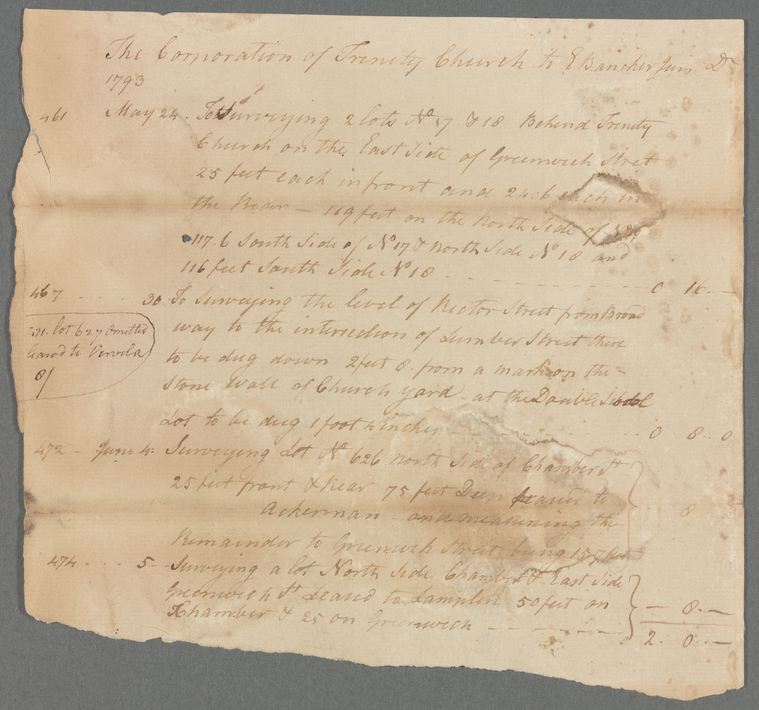 The Corporation of Trinity Church to E Bancker Junr Dr
1793
461 May 24. To Surveying 2 lots No 17 & 18 Behind Trinity
Church on the East Side of Greenwich Street
25 feet each in front and 24.6 inch in
the Rear – 119 feet on the North Side of No
117.6 South Side of No 17 & North Side No 18 and
116 feet South Side No 18 - - - 0 16 –
467 - - - 30 To Surveying the level of Rector Street from Broad
way to the intersection of Lumber Street there
to be dug down 2 feet 8. from a mark on the
Stone Wall of Church yard at the Double
Lot to be dug 1 foot 4 inches - - - 0 8 .. 0
lot 627 omitted
8/
472 - June 4. Surveying Lot No 626 North Side of Chamber St
25 feet front & Rear 75 feet Deep Leased to
Ackerman – and measuring the 8
Remainder to Greenwich Street being
474 - - - 5 - Surveying a lot North Side Chamber & East Side
Greenwich St Leased to Lamplin 50 feet on – 8 . –
Chamber & 25 on Greenwich - - -
2. 0 . –